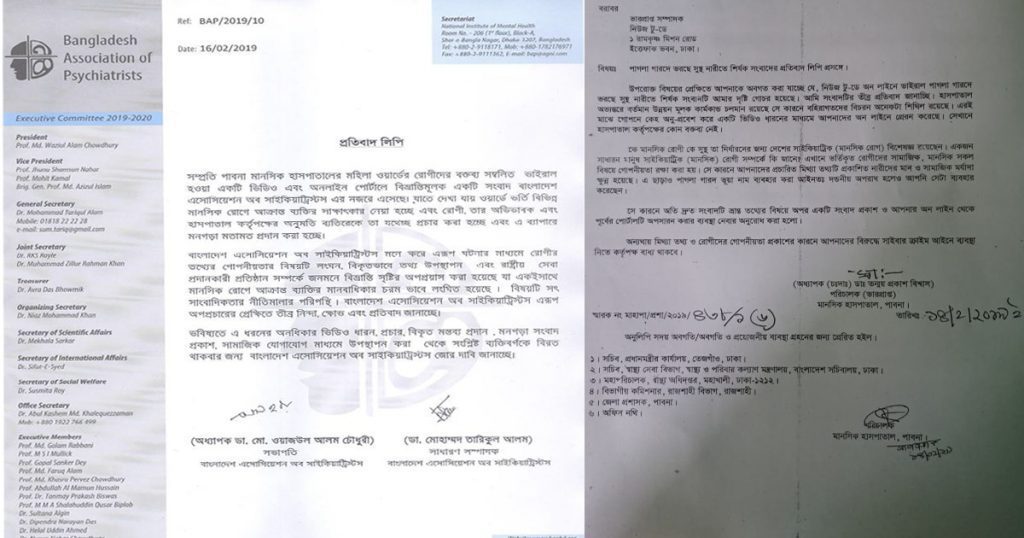 Bangladesh
Association of
Psychiatrists
Executive Committee 2019-2020
President
Prof. Md. Waziul Alam Chowdhury
Vice President
Prof. Jhunu Shamsun Nahar
Prof. Mohit Kamal
Brig. Gen. Prof. Md. Azizul Islam
General Secretary
Dr. Mohammad Tariqul Alam
Mobile: 01818 22 22 28
e-mail: sum.tariq@gmail.com
Joint Secretary
Dr. RKS Royle
Dr. Muhammad Zillur Rahman Khan
Treasurer
Dr. Avra Das Bhowmik
Organizing Secretary
Dr. Niaz Mohammad Khan
Secretary of Scientific Affairs
Dr. Mekhala Sarkar
Secretary of International Affairs
Dr. Sifat-E-Syed
Secretary of Social Welfare
Dr. Susmita Roy
Office Secretary
Dr. Abul Kashem Md. Khalequzzaman
Mob: +880 1922 766 499
Executive Members
Prof. Md. Golam Rabbani
Prof. M S I Mullick
Prof. Gopal Sanker Dey
Prof. Md. Faruq Alam
Prof. Md. Khasru Pervez Chowdhury
Prof. Abdullah Al Mamun Hussain
Prof. Dr. Tanmay Prakash Biswas
Prof. M M A Shalahuddin Qusar Biplob
Dr. Sultana Algin
Dr. Dipendra Narayan Das
Dr. Helal Uddin Ahmed
Ref: BAP/2019/10
Date: 16/02/2019
Secretariat
National Institute of Mental Health
Room No. - 206 (1st floor), Block-A,
Sher e Bangla Nagar, Dhaka 1207, Bangladesh
Tel: +880-2-9118171, Mob: +880-1782176971
Fax: +880-2-9111362, E-mail:
প্রতিবাদ লিপি
সম্প্রতি পাবনা মানসিক হাসপাতালের মহিলা ওয়ার্ডের রোগীদের বক্তব্য সম্বলিত ভাইরাল
হওয়া একটি ভিডিও এবং অনলাইন পোর্টালে বিভ্রান্তিমূলক একটি সংবাদ বাংলাদেশ
এসোসিয়েশন অব সাইকিয়াট্রিস্টস এর নজরে এসেছে। যাতে দেখা যায় ওয়ার্ডে ভর্তি বিভিন্ন
মানসিক রোগে আক্রান্ত ব্যক্তির সাক্ষাৎকার নেয়া হচ্ছে এবং রোগী, তার অভিভাবক এবং
হাসপাতাল কর্তৃপক্ষের অনুমতি ব্যতিরেকে তা যথেচ্ছ প্রচার করা হচ্ছে এবং এ ব্যাপারে
মনগড়া মতামত প্রদান করা হচ্ছে।
বাংলাদেশ এসোসিয়েশন অব সাইকিয়াট্রিস্টস মনে করে এরূপ ঘটনার মাধ্যমে রোগীর
তথ্যের গোপনীয়তার বিষয়টি লংঘন, বিকৃতভাবে তথ্য উপস্থাপন এবং রাষ্ট্রীয় সেবা
প্রদানকারী প্রতিষ্ঠান সম্পর্কে জনমনে বিভ্রান্তি সৃষ্টির অপপ্রয়াস করা হয়েছে যা একইসাথে
মানসিক রোগে আক্রান্ত ব্যক্তির মানবাধিকার চরম ভাবে লংঘিত হয়েছে । বিষয়টি সৎ
সাংবাদিকতার নীতিমালার পরিপন্থি । বাংলাদেশ এসোসিয়েশন অব সাইকিয়াট্রিস্টস এরূপ
অপপ্রচারের প্রেক্ষিতে তীব্র নিন্দা, ক্ষোভ এবং প্রতিবাদ জানাচ্ছে।
ভবিষ্যতে এ ধরনের অনধিকার ভিডিও ধারন, প্রচার, বিকৃত মন্তব্য প্রদান , মনগড়া সংবাদ
প্রকাশ, সামাজিক যোগাযোগ মাধ্যমে উপস্থাপন করা থেকে সংশ্লিষ্ট ব্যক্তিবর্গকে বিরত
থাকবার জন্য বাংলাদেশ এসোসিয়েশন অব সাইকিয়াট্রিস্টস জোর দাবি জানাচ্ছে।
(অধ্যাপক ডা. মো. ওয়াজিউল আলম চৌধুরী)
সভাপতি
বাংলাদেশ এসোসিয়েশন অব সাইকিয়াট্রিস্টস
(ডা. মোহাম্মদ তারিকুল আলম)
সাধারণ সম্পাদক
বাংলাদেশ এসোসিয়েশন অব সাইকিয়াট্রিস্টস
বরাবর
ভারপ্রাপ্ত সম্পাদক
নিউজ টু-ডে
১ রামকৃষ্ণ মিশন রোড
ইত্তেফাক ভবন, ঢাকা।
বিষয়ঃ পাগলা গারদে ভরছে সুস্থ নারীতে শির্ষক সংবাদের প্রতিবাদ লিপি প্রসঙ্গে।
উপরোক্ত বিষয়ের প্রেক্ষিতে আপনাকে অবগত করা যাচ্ছে যে, নিউজ টু-ডে অন লাইনে ভাইরাল পাগলা গারদে
ভরছে সুস্থ নারীতে শির্ষক সংবাদটি আমার দৃষ্টি গোচর হয়েছে। আমি সংবাদটির তীব্র প্রতিবাদ জানাচ্ছি। হাসপাতাল
অভ্যন্তরে বর্তমান উন্নয়ন মূলক কার্যকান্ড চলমান রয়েছে সে কারনে বহিরাগতদের বিচরন অনেকটা শিথিল রয়েছে। এরই
মাঝে গোপনে কেহ অনু-প্রবেশ করে একটি ভিডিও ধারনের মাধ্যমে আপনাদের অন লাইনে প্রেরন করেছে। সেখানে
হাসপাতাল কর্তৃপক্ষের কোন বক্তব্য নেই।
কে মানসিক রোগী কে সুস্থ তা নির্ধারনের জন্য দেশের সাইকিয়াট্রিক (মানসিক রোগ) বিশেষজ্ঞ রয়েছেন। একজন
সাধারন মানুষ সাইকিয়াট্রিক (মানসিক) রোগী সম্পর্কে কি জানে? এখানে ভর্তিকৃত রোগীদের সামাজিক, মানসিক সকল
বিষয়ে গোপনীয়তা রক্ষা করা হয়। সে কারনে আপনাদের প্রচারিত মিথ্যা তথ্যটি প্রকাশিত নারীদের মান ও সামাজিক মর্যাদা
ক্ষুন্ন হয়েছে। এ ছাড়াও পাগলা গারদ ভূয়া নাম ব্যবহার করা আইনতঃ দন্ডনীয় অপরাধ হলেও আপনি সেটা ব্যবহার
করেছেন।
সে কারনে অতি দ্রুত সংবাদটি ভ্রান্ত তথ্যের বিষয়ে অপর একটি সংবাদ প্রকাশ ও আপনার অন লাইন থেকে
পূর্বের পোর্টালটি অপসারন করার ব্যবস্থা নেবার অনুরোধ করা হলো।
অন্যথায় মিথ্যা তথ্য ও রোগীদের গোপনীয়তা প্রকাশের কারনে আপনাদের বিরুদ্ধে সাইবার ক্রাইম আইনে ব্যবস্থা
নিতে কর্তৃপক্ষ বাধ্য থাকবে।
স্বা:-
(অধ্যাপক (চঃদাঃ) ডাঃ তন্ময় প্রকাশ বিশ্বাস)
পরিচালক (ভারপ্রাপ্ত)
মানসিক হাসপাতাল, পাবনা।
স্মারক নং মাহাপা/প্রশা/২০১৯/৪৩৮/১(৬)
তারিখঃ ১৪/2/২০১৯
অনুলিপি সদয় অবগতি/অবগতি ও প্রয়োজনীয় ব্যবস্থা গ্রহনের জন্য প্রেরিত হইল।
১। সচিব, প্রধানমন্ত্রীর কার্যালয়, তেজগাঁও, ঢাকা।
২। সচিব, স্বাস্থ্য সেবা বিভাগ, স্বাস্থ্য ও পরিবার কল্যাণ মন্ত্রণালয়, বাংলাদেশ সচিবালয়, ঢাকা।
৩। মহাপরিচালক, স্বাস্থ্য অধিদপ্তর, মহাখালী, ঢাকা-১২১২।
৪। বিভাগীয় কমিশনার, রাজশাহী বিভাগ, রাজশাহী।
৫। জেলা প্রশাসক, পাবনা।
৬। অফিস নথি।
পরিচালক
মানসিক হাসপাতাল, পাবনা।